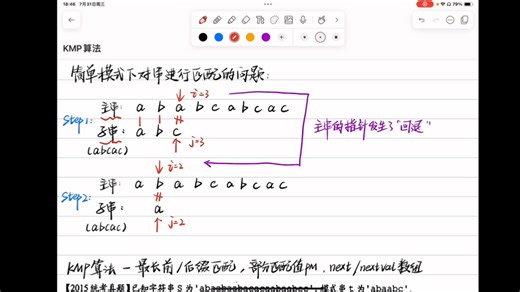 18:46 7月31日周三
79%
KMP算法
简单模式下对串进行匹配的问题：
i=3
主串： a b a b c a b c a c
Step1：
子串： a b c
(abcac)
j=3
主串的指针发生了"回退"
i=2
主串： a b a b c a b c a c
Step2：
子串： a
(abcac)
j=2
KMP算法 — 最长前/后缀匹配，部分匹配值PM，next/nextval数组
【2015统考真题】已知字符串S为'abaabaabacacaabaabcc'，模式串t为'abaabc'，